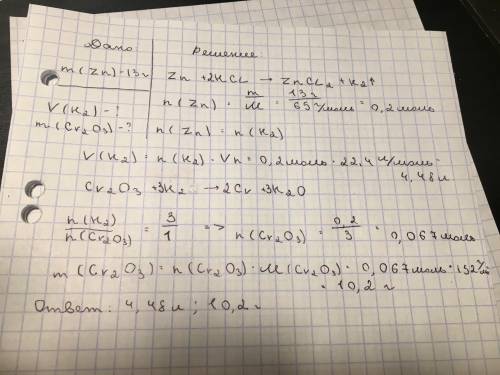 Дано
Решение:
m(Zn) = 13 г
Zn + 2HCl → ZnCl₂ + H₂↑
n(Zn) = m/M = 13 г / 65 г/моль = 0,2 моль
V(H₂) - ?
m(Cr₂O₃) - ?
n(Zn) = n(H₂)
V(H₂) = n(H₂) · Vn = 0,2 моль · 22,4 л/моль =
4,48 л
Cr₂O₃ + 3H₂ → 2Cr + 3H₂O
n(H₂) / n(Cr₂O₃) = 3/1 => n(Cr₂O₃) = 0,2/3 = 0,067 моль
m(Cr₂O₃) = n(Cr₂O₃) · M(Cr₂O₃) = 0,067 моль · 152 г/м
= 10,2 г
Ответ: 4,48 л ; 10,2 г